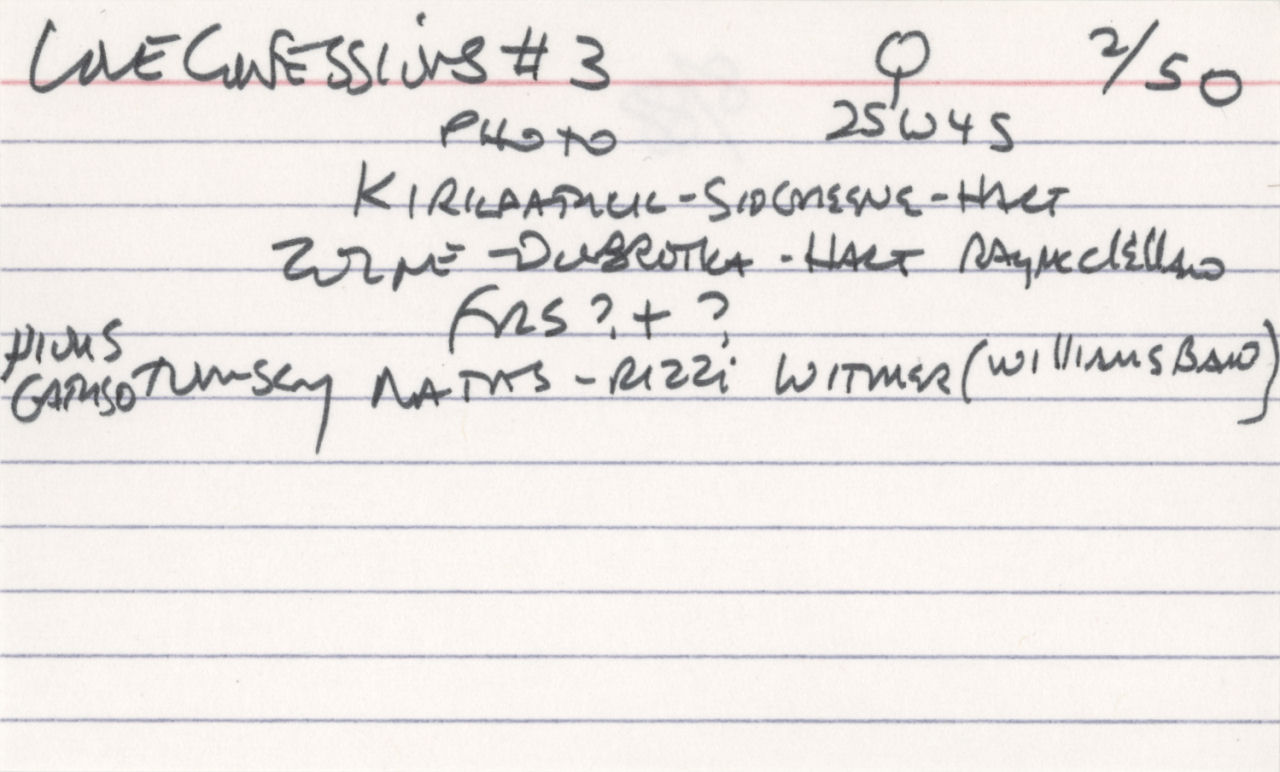 LOVE CONFESSIONS # 3 Q 2/50
PHOTO 25W45
KIRKPATRICK - SID GREENE - HART
ZOLNE - DUBROTKA - HART RAY McClelland
FRS ? + ?
HIMS
CARUSO TUMSKY NATHS - RIZZI WITMER (WilliAMSBAW)